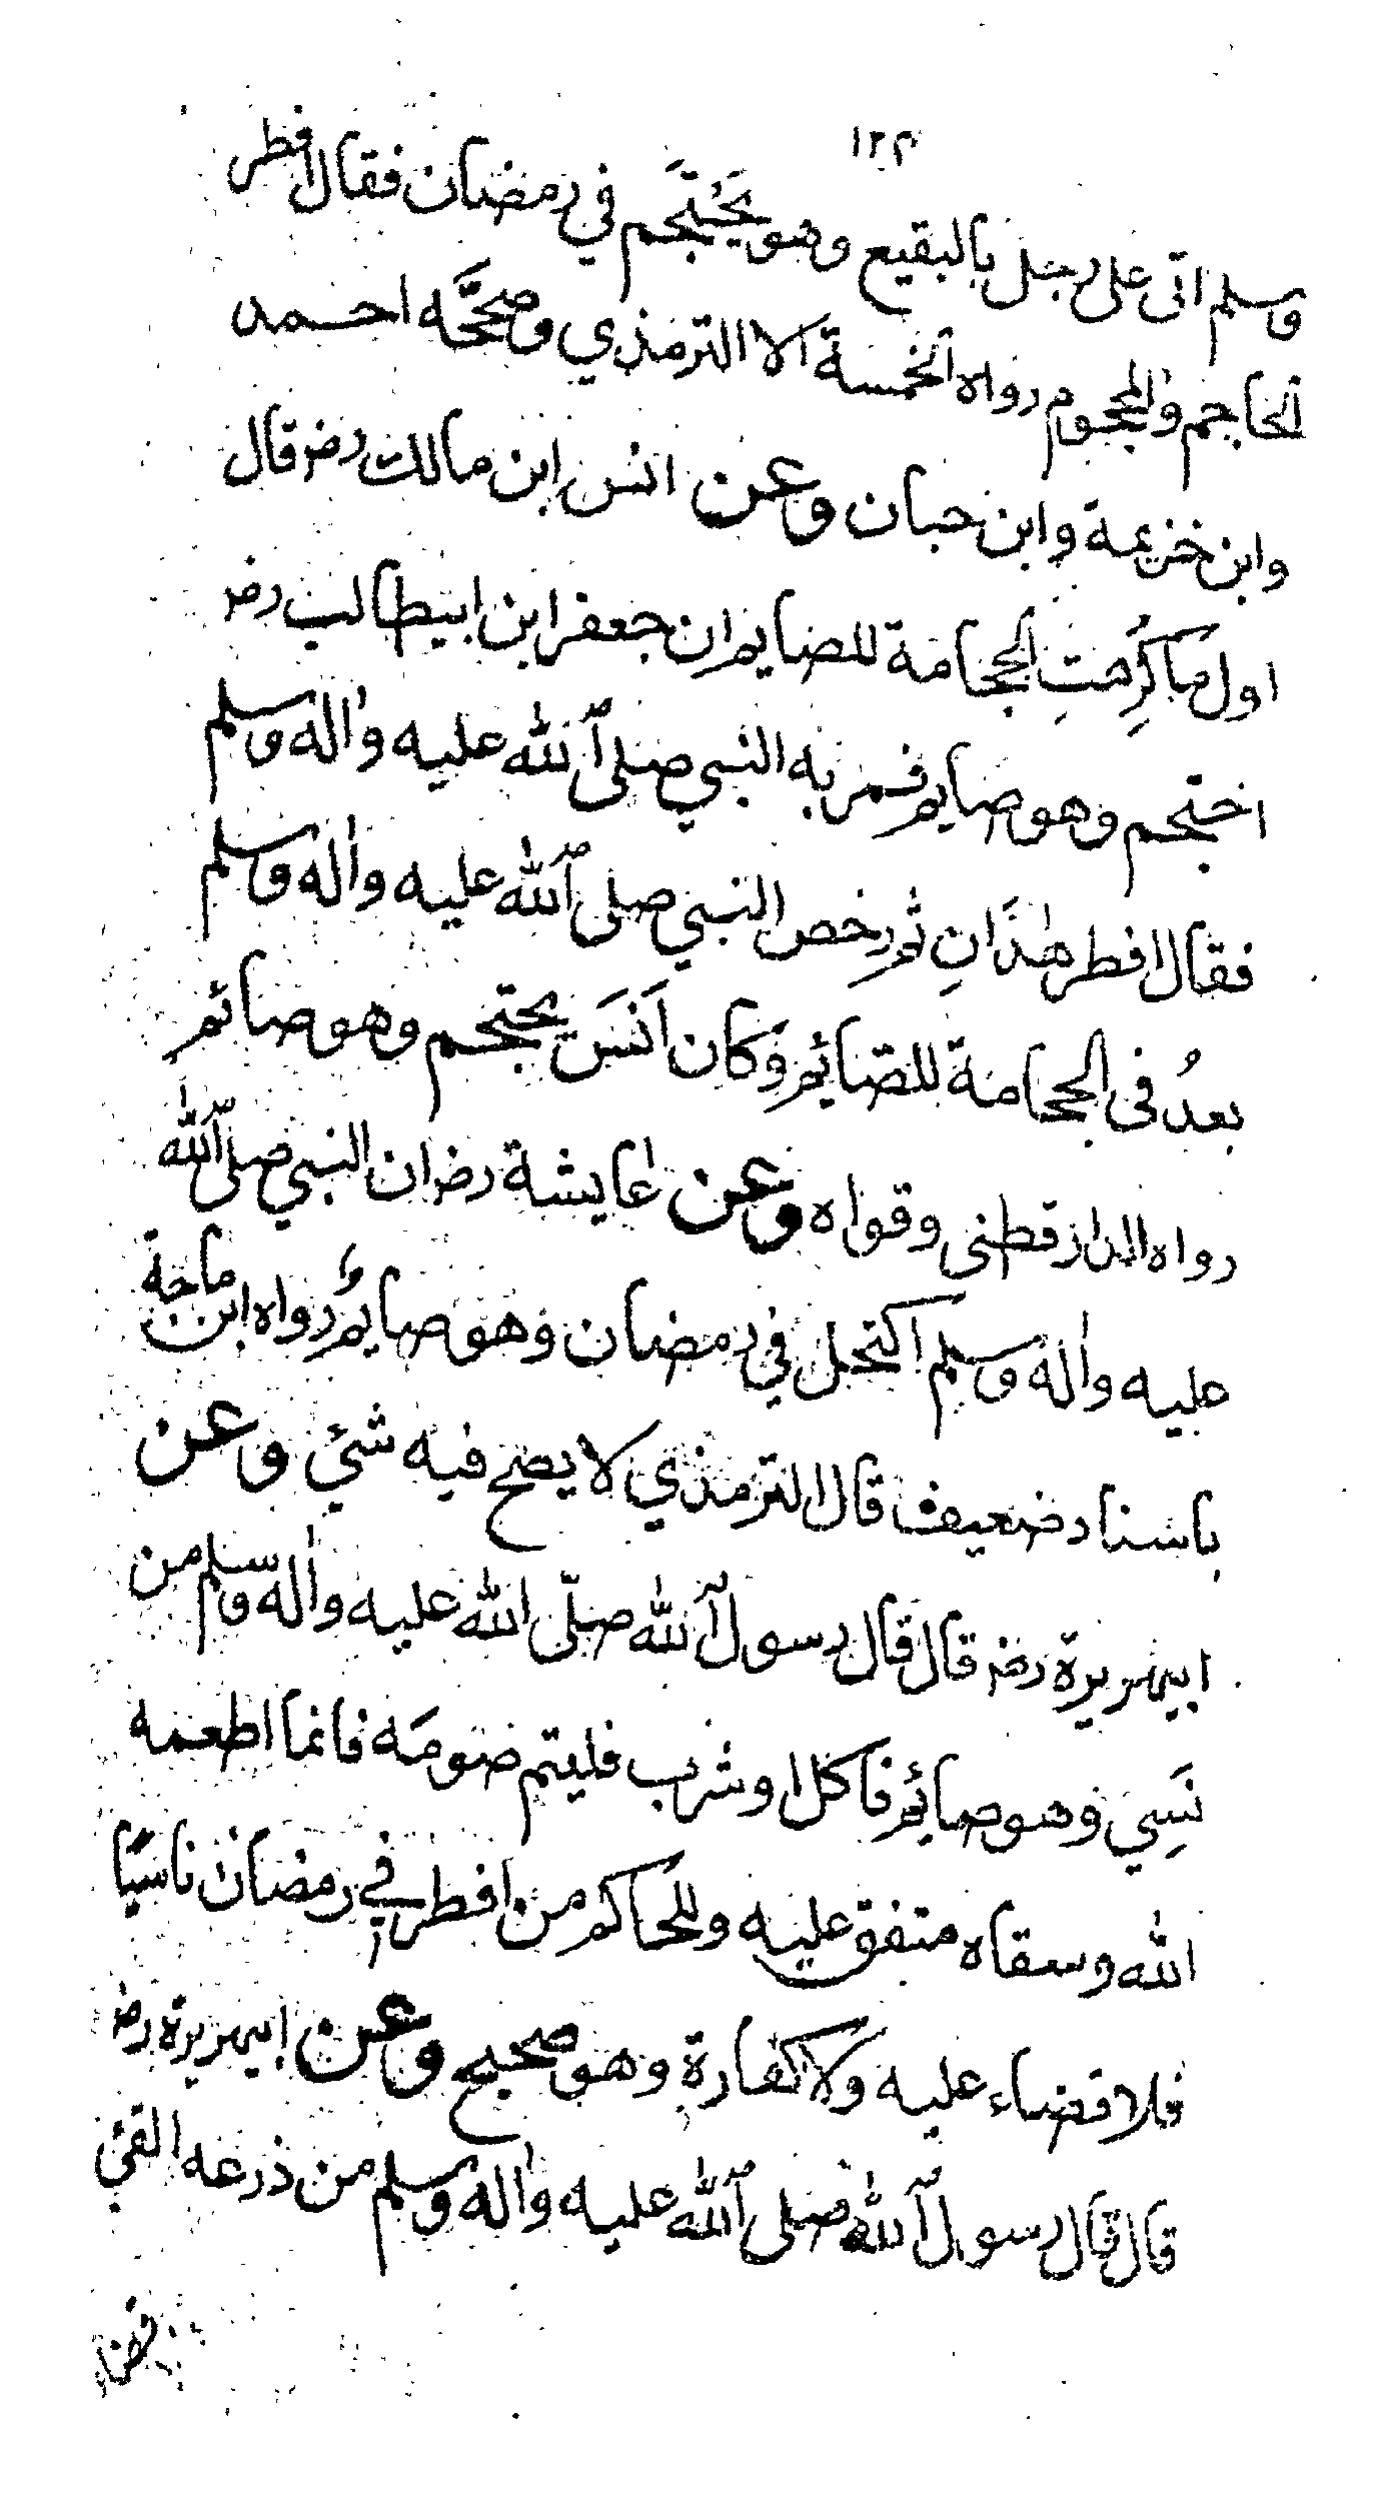 ١٢٣
وسلم اتى على رجل بالبقيع وهو يَحْتَجَم في رمضان فقال افطر
الحاجم والمحجوم رواه الخمسة الا الترمذي وصححَّه احمد
وابن خزيمة وابن حبان وعن انس ابن مالك رضر قال
اول ما كُرِهتِ الحجامة للصايم ان جعفر ابن ابيطالب رضر
احتجم وهو صايم فمر به النبي صلى الله عليه واله وسلم
فقال افطر هذَانِ ثم رخص النبي صلى الله عليه واله وسلم
بعدُ في الحجامة للصّائم وَكان اَنَسَ يحتجم وهو صائم
رواه الدارقطنى وقواه وعن عايشة رضر ان النبي صلى الله
عليه واله وسلم اكتحل في رمضان وهو صايم رواه ابن ماجة
باسناد ضعيف قال الترمذي لا يصح فيه شئ وعن
ابيهريرة رضر قال قال رسول الله صلّى الله عليه واله وسلم من
نَسِي وهو صائم فاكل او شرب فليتم صومَه فانما اطعمه
الله وسقاه متفق عليه وللحاكم من افطر في رمضان ناسيًا
فلا قضاء عليه ولا كفارة وهو صحيح وعن ابيهريرة رضر
قال قال رسول الله صلى الله عليه واله وسلم من ذرعه القئ